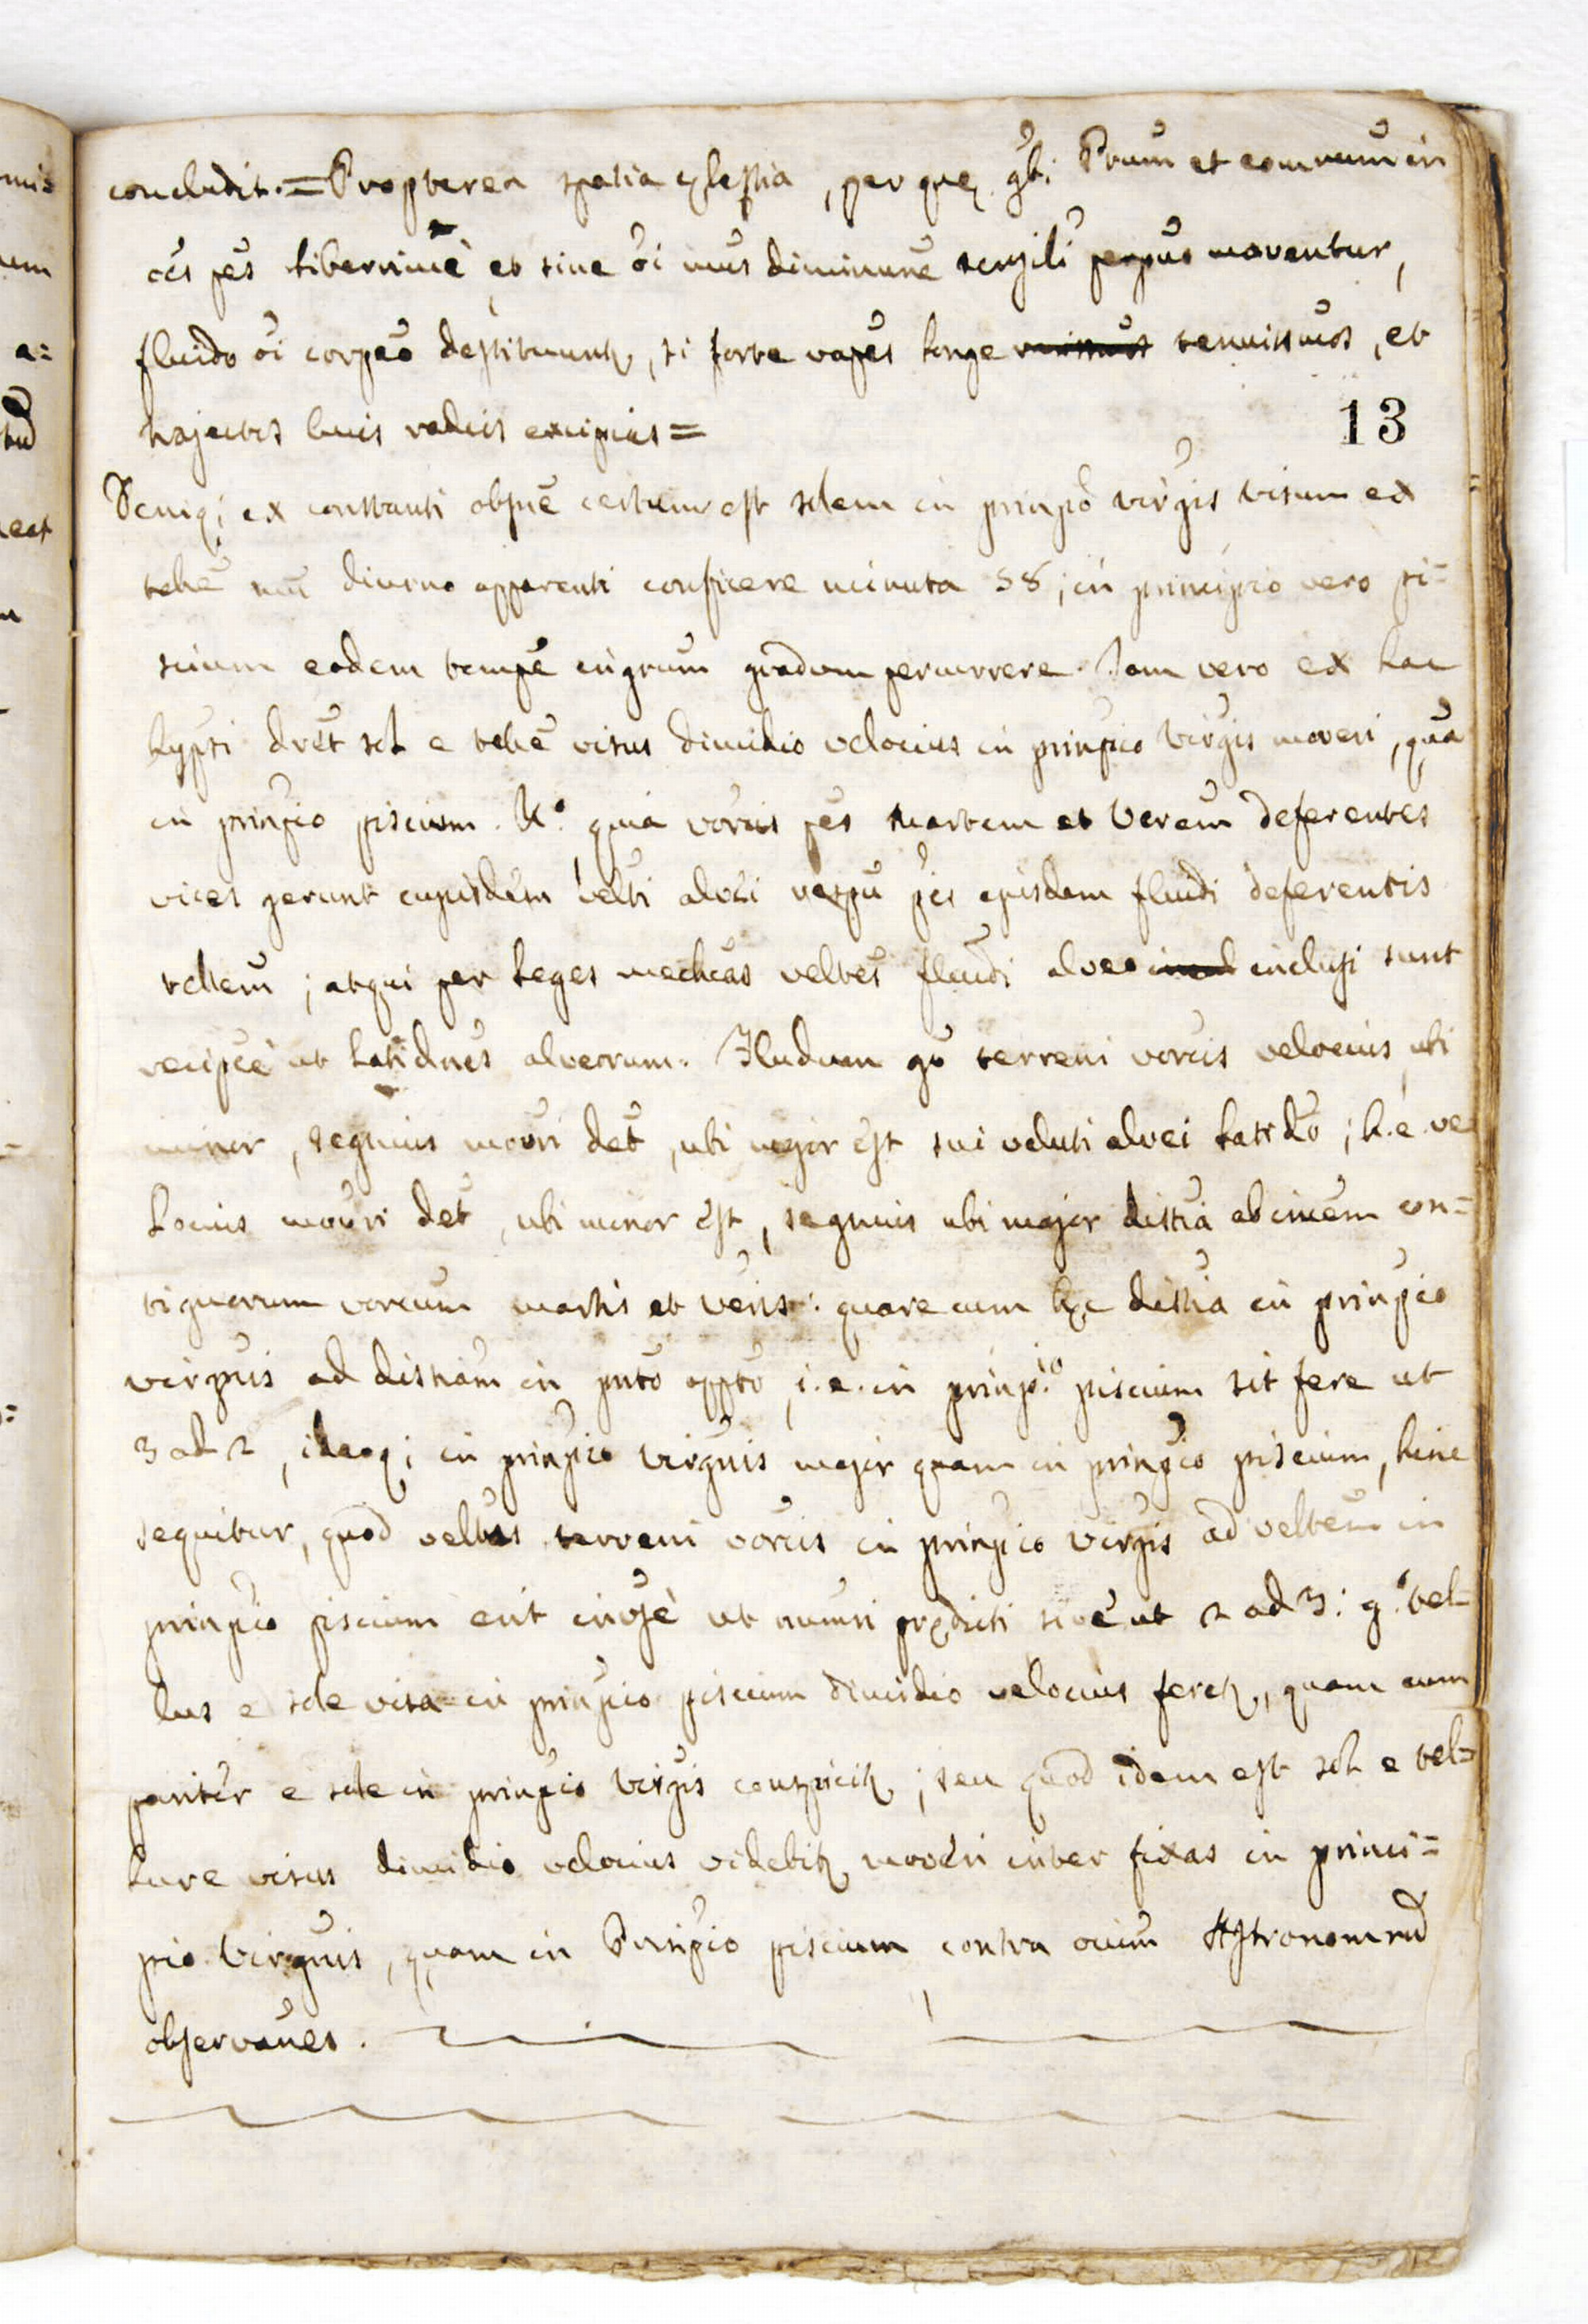 concludit. = Propterea spatia cȩlestia, per quȩ gḃi Pnum̃ et comnum̃ in
oẽs pẽs liberrimè et sine õi mũs diminunẽ sensili perpuõ moventur,
fluido õi corpeõ destituuntr, si forte vapẽs longe tenuissimos, et
trajectos lucis radiis excipias =
13
Deniq; ex constanti obsnẽ certum est solem in prinpõ virg̃is visum ex
tellẽ mũ diurno apparenti conficere minuta 58; in principio vero pi=
scium eodem tempẽ ingrum̃ gradum percurrere. Iam vero ex hac
hyp̃si dret̃ sol e tellẽ visus dimidio velocius in prinp̃io Virg̃is moveri, quã
in prinp̃io piscium. Rº. quia vorcis̃ pẽs Martem et Verem̃ deferentes
vices gerunt cujusdem velti alvei respũ p̃is ejusdem fluidi deferentis
tellem̃; atqui per leges mechcãs veltẽs fluidi alveo inclusi sunt
recipcẽ ut latidnẽs alveorum. Fludum gõ terreni vorcis̃ velocius ubi
minor, segnius moṽri deb̃t, ubi major est sui veluti alvei latidõ; h.e. ve
locius moṽri deb̃t, ubi minor est, segnius ubi major distiã ab invem̃ con=
tiguorum vorcum̃ martis et venis̃: quare cum hȩc distiã in prinp̃io
virginis ad distiam̃ in pnto õppto, i.e. in prinp.io piscium sit fere ut
3 ad 2, ideoq; in prinp̃io virginis major quam in prinp̃io piscium, hinc
sequitur, quod veltas terreni vorcis̃ in prinp̃io virg̃is ad veltem̃ in
prinp̃io piscium erit invsẽ ut numri prȩdicti sive ut 2 ad 3: g.º tel=
lus e sole visa in prinp̃io piscium dimidio velocius feretr, quam cum
pariter e sole in prinp̃io Virg̃is conspicitr; seu quod idem est sol e tel=
lure visus dimidio velocius videbitr moveri inter fixas in princi=
pio Virginis, quam in Prinp̃io piscium contra oium̃ Astronomrũ
observanẽs.